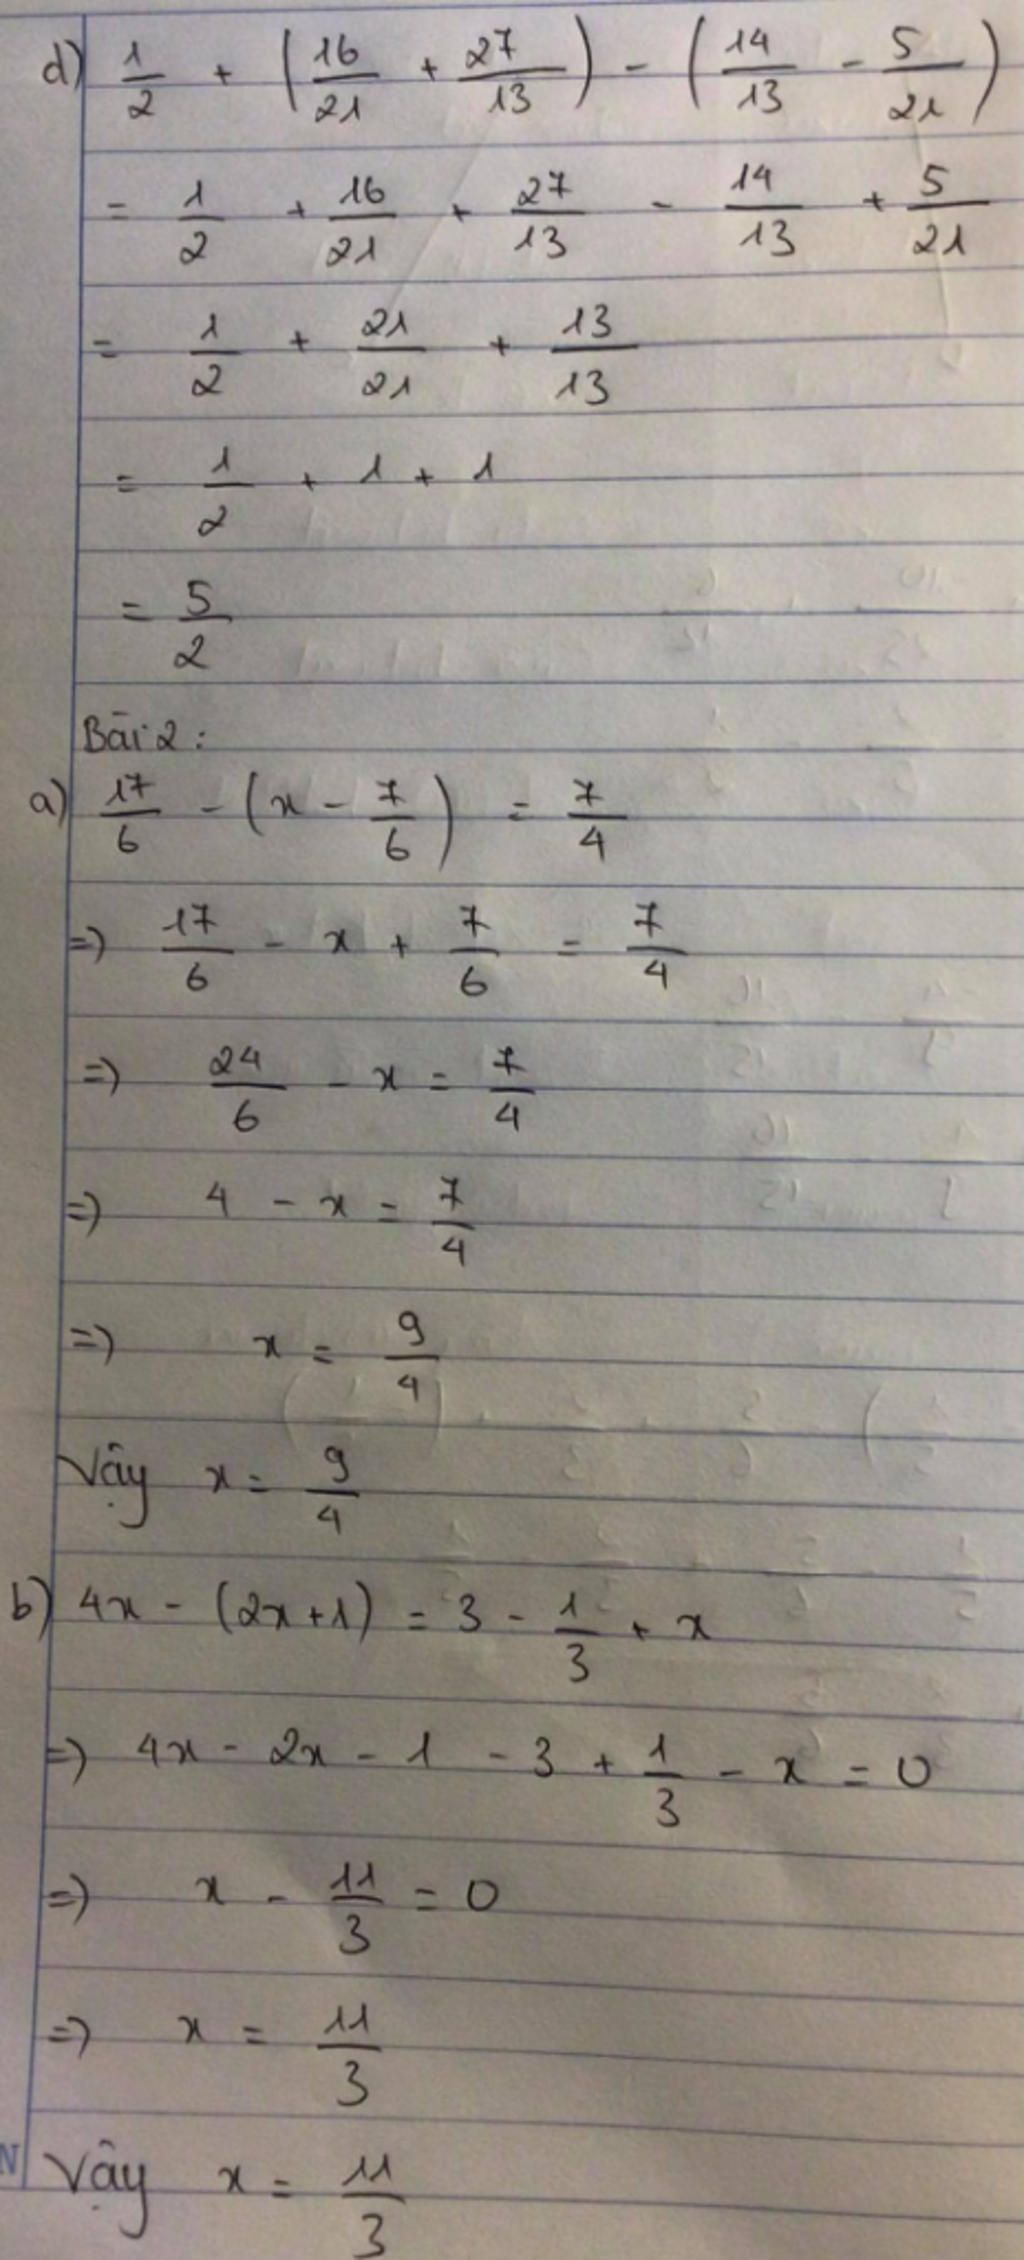 d) 1/2 + (16/21 + 27/13) - (14/13 - 5/21)
= 1/2 + 16/21 + 27/13 - 14/13 + 5/21
= 1/2 + 21/21 + 13/13
= 1/2 + 1 + 1
= 5/2
Bài 2:
a) 17/6 - (x - 7/6) = 7/4
=> 17/6 - x + 7/6 = 7/4
=> 24/6 - x = 7/4
=> 4 - x = 7/4
=> x = 9/4
Vậy x = 9/4
b) 4x - (2x+1) = 3 - 1/3 + x
=> 4x - 2x - 1 - 3 + 1/3 - x = 0
=> x - 11/3 = 0
=> x = 11/3
N Vậy x = 11/3